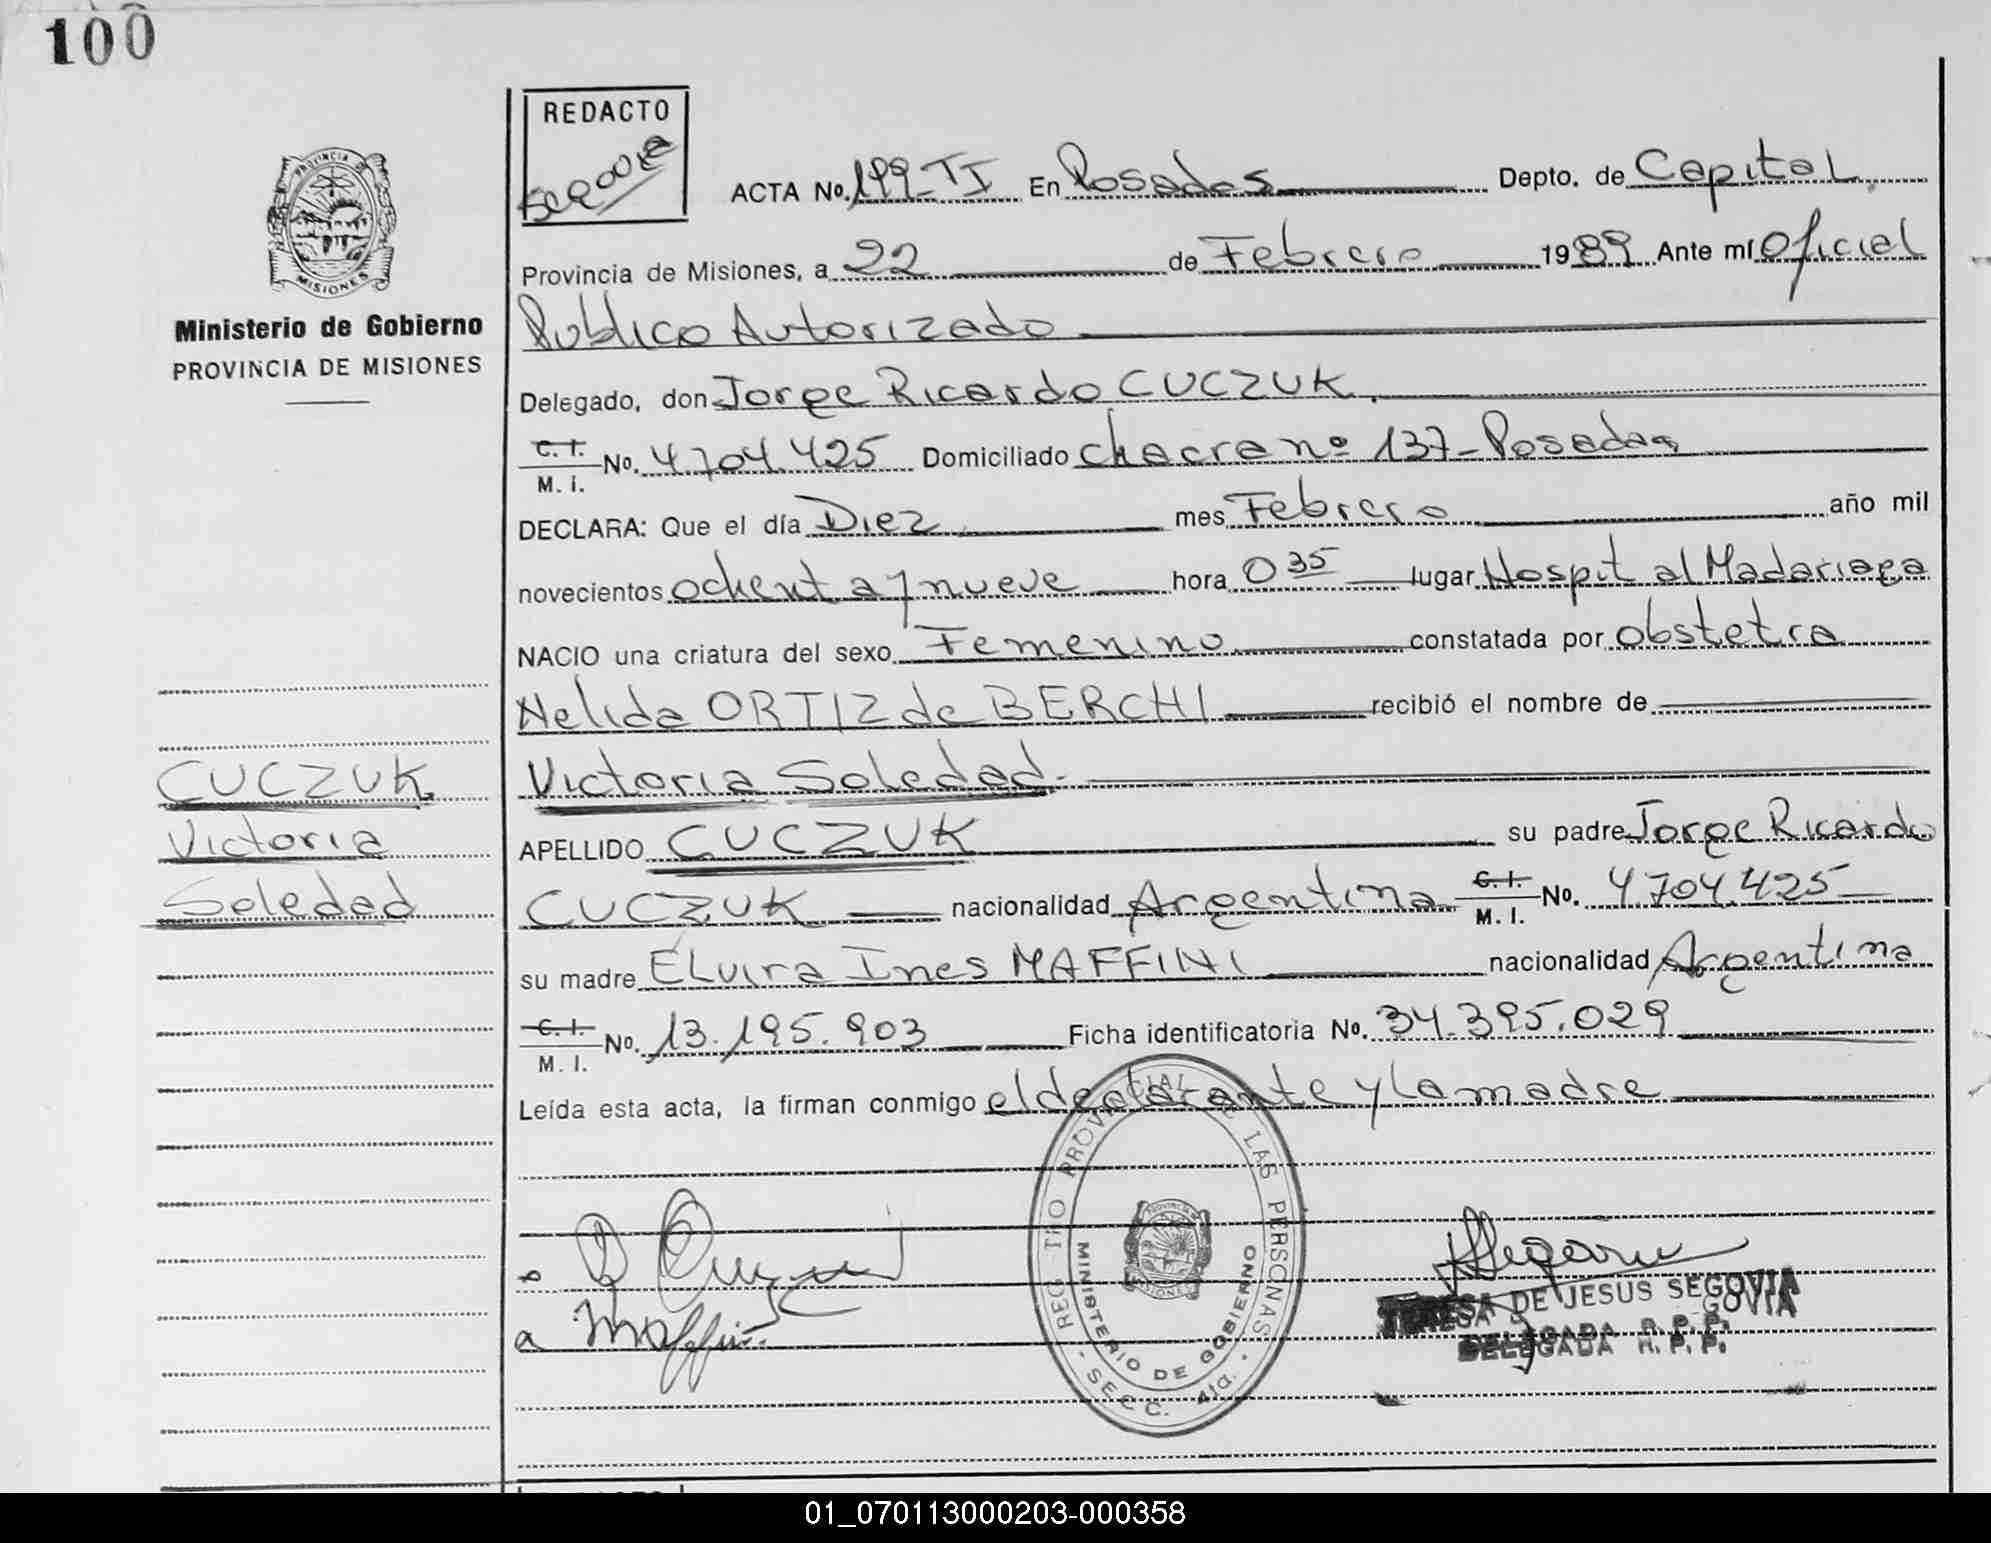 100
REDACTO
ACTA No. 199-TI En Posadas Depto. de Capital
Provincia de Misiones, a 22 de Febrero 1989 Ante mí Oficial
Ministerio de Gobierno
PROVINCIA DE MISIONES
Publico Autorizado
Delegado, don Jorge Ricardo CUCZUK
C.I. M.I. No. 4.704.425 Domiciliado chacra nº 137-Posadas
DECLARA: Que el día Diez mes Febrero año mil
novecientos ochenta y nueve hora 0 35 lugar Hospital Madariaga
NACIO una criatura del sexo Femenino constatada por obstetra
Nelida ORTIZ de BERCHI recibió el nombre de
Victoria Soledad
CUCZUK
Victoria
Soledad
APELLIDO CUCZUK su padre Jorge Ricardo
CUCZUK nacionalidad Argentina C.I. M.I. No. 4704.425
su madre ELvira Ines MAFFINI nacionalidad Argentina
C.I. M.I. No. 13.195.903 Ficha identificatoria No. 34.395.029
Leída esta acta, la firman conmigo el declarante y la madre
REGISTRO PROVINCIAL DE LAS PERSONAS
MINISTERIO DE GOBIERNO
SECC. 4ta.
PROVINCIA DE MISIONES
a Maffini
TERESA DE JESUS SEGOVIA
DELEGADA R. P. P.
01_070113000203-000358